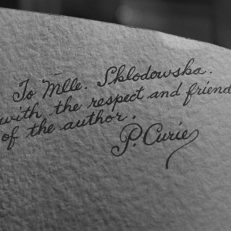 To Mlle. Sklodowska.
with the respect and friend
of the author.
P. Curie